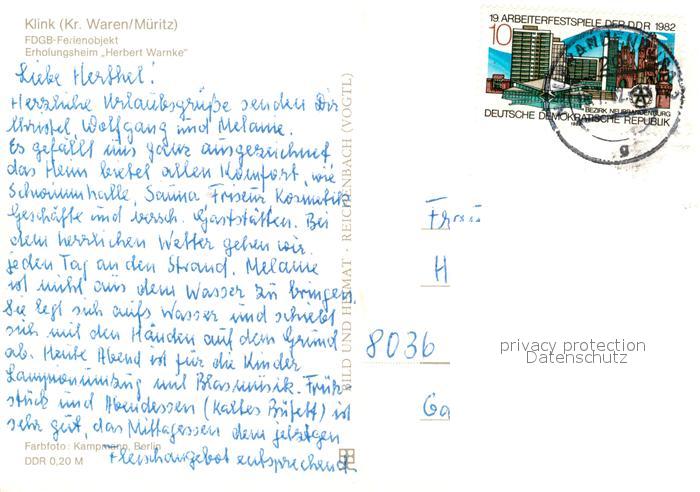 Klink (Kr. Waren/Müritz)
FDGB-Ferienobjekt
Erholungsheim „Herbert Warnke“
Liebe Herthel!
Herzliche Urlaubsgrüße senden Dir
Christel, Wolfgang und Melanie.
Es gefällt uns ganz ausgezeichnet
das Heim bietet allen Komfort, wie
Schwimmhalle, Sauna Friseur Kosmetik
Geschäfte und versch. Gaststätten. Bei
dem herrlichen Wetter gehen wir
jeden Tag an den Strand. Melanie
ist nicht aus dem Wasser zu bringen.
Sie legt sich aufs Wasser und schiebt
sich mit den Händen auf dem Grund
ab. Heute Abend ist für die Kinder
Lampionumzug mit Blasmusik. Früh-
stück und Abendessen (Kaltes Büfett) ist
sehr gut, das Mittagessen dem jetzigen
Fleischangebot entsprechend.
Farbfoto: Kampmann, Berlin
DDR 0,20 M
BILD UND HEIMAT · REICHENBACH (VOGTL)
19. ARBEITERFESTSPIELE DER DDR 1982
10
BEZIRK NEUBRANDENBURG
DEUTSCHE DEMOKRATISCHE REPUBLIK
g
Frau
H
8036
Ga
privacy protection
Datenschutz